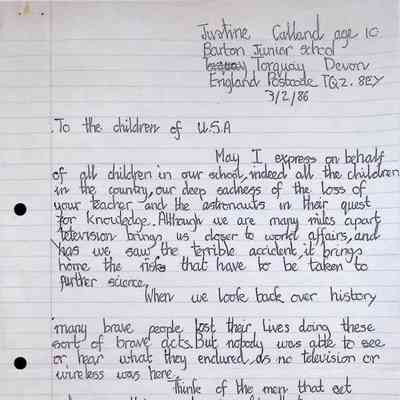 Justine Cutland age 10
Barton Junior school
Torquay Devon
England Postcode TQ2. 8EY
3/2/86
To the children of U.S.A
May I express on behalf
of all children in our school, indeed all the children
in the country, our deep sadness of the loss of
your teacher and the astronauts in their quest
for knowledge. Although we are many miles apart
television brings us closer to world affairs, and
has we saw the terrible accident, it brings
home the risks that have to be taken to
further science.
When we look back over history
many brave people lost their lives doing these
sort of brave acts. But nobody was able to see
or hear what they endured, as no television or
wireless was here.
Think of the men that set